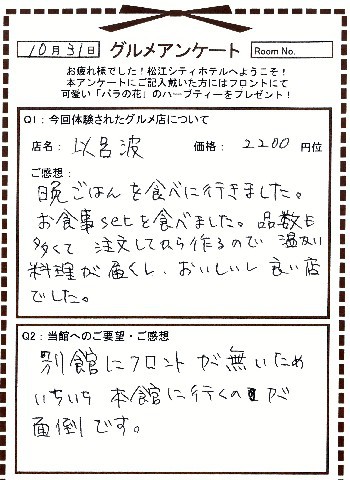 10月31日 グルメアンケート Room No.
お疲れ様でした!松江シティホテルへようこそ!
本アンケートにご記入戴きた方にはフロントにて
可愛い「バラの花」のハーブティーをプレゼント!
Q1:今回体験されたグルメ店について
店名: 以呂波 価格: 2200 円位
ご感想:
晩ごはんを食べに行きました。
お食事setを食べました。品数も
多くて 注文してから作るので 温かい
料理が届くし、おいしいし 良い店
でした。
Q2:当館へのご要望・ご感想
別館にフロントが無いため
いちいち 本館に行くのが
面倒です。